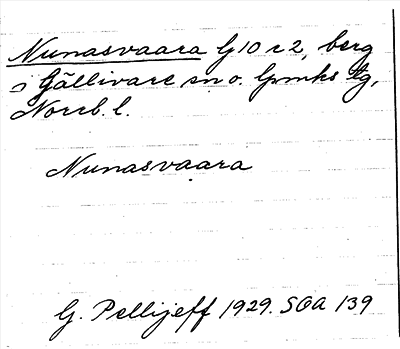 Nunasvaara G 10 c 2, berg
i Gällivare sn o. lpmks tg,
Norrb. l.
Nunasvaara
G. Pellijeff 1929. SOA 139